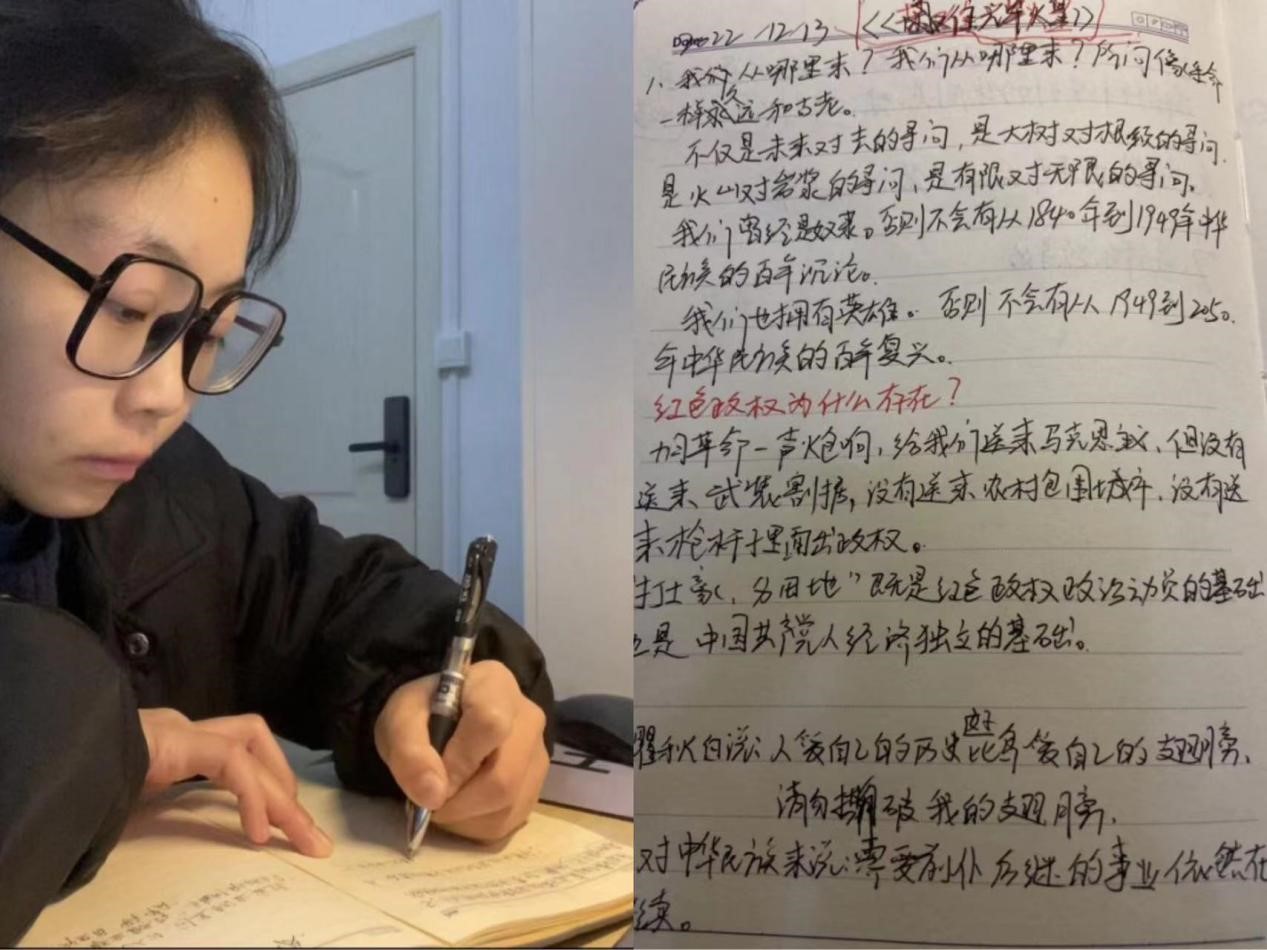 22 12.13 《《 火星》》
1. 我们从哪里来？我们从哪里来？所问像生命
一样永远和古老。
不仅是未来对去的寻问，是大树对根须的寻问.
是火山对岩浆的寻问，是有限对无限的寻问.
我们曾经是奴隶。否则不会有从1840年到1949年中华
民族的百年沉沦。
我们也拥有英雄。否则不会有从1949到2050.
年中华民族的百年复兴。
红色政权为什么存在？
革命一声炮响，给我们送来马克思主义、但没有
送来武装割据，没有送来农村包围城市，没有送
来枪杆子里面出政权。
打土豪、分田地”既是红色政权政治动员的基础
是中国共产党人经济独立的基础。
瞿秋白说：人爱自己的历史好比鸟爱自己的翅膀、
请勿撕破我的翅膀.
对中华民族来说：需要前仆后继的事业依然在
续。